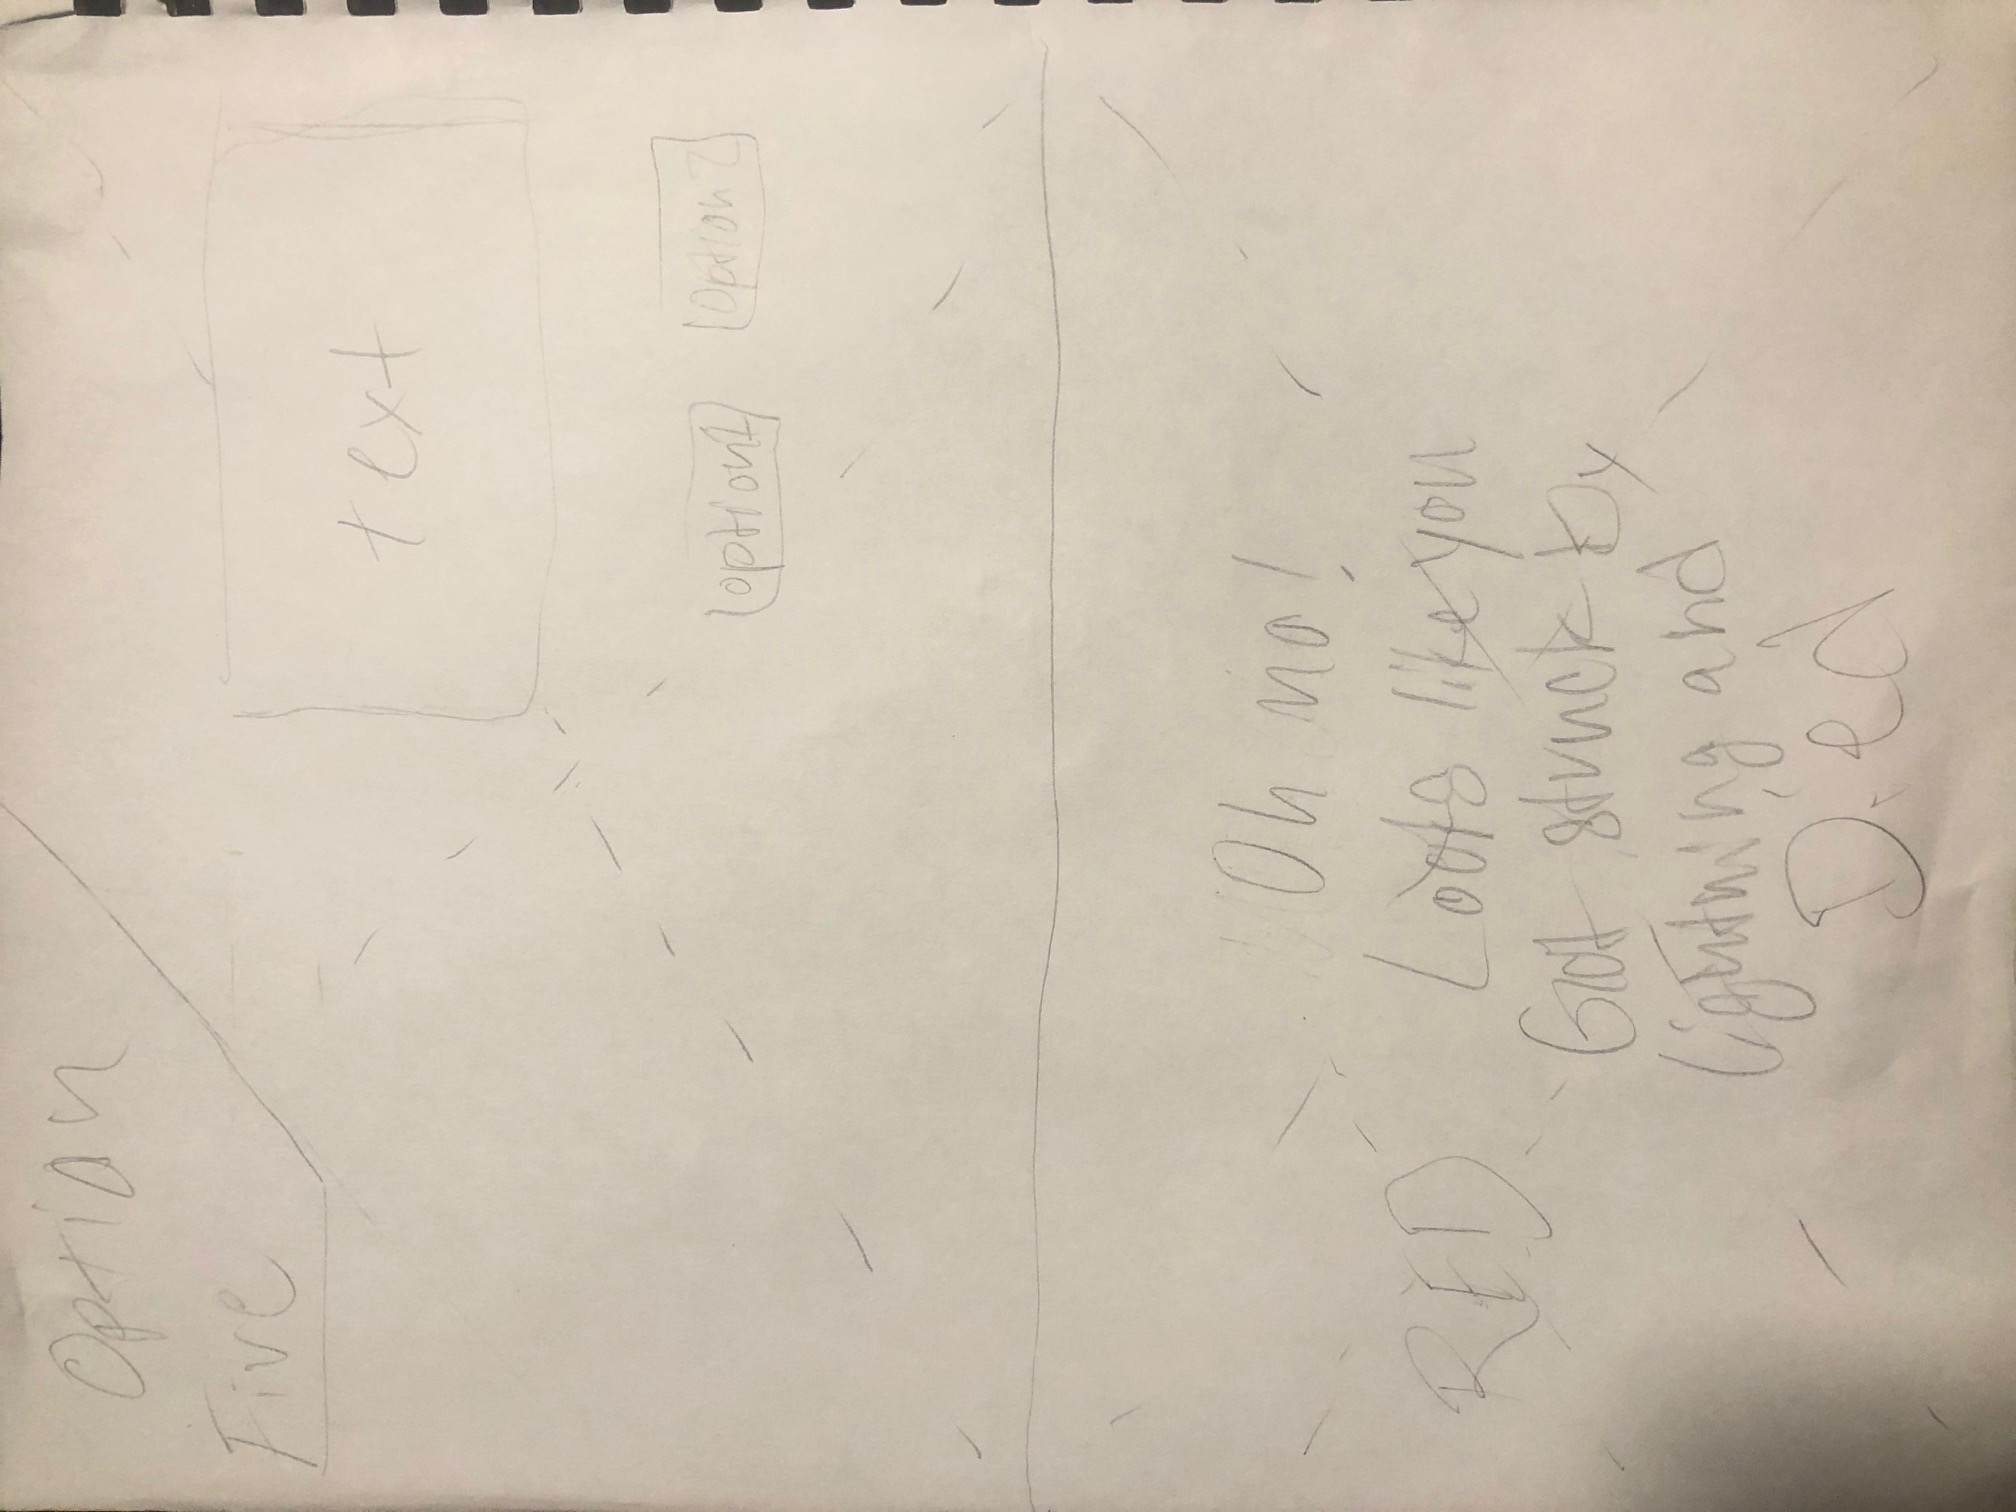 Option
Five
text
option1
option2
Oh no!
Looks like you
RED
Got struck by
Lightning and
Died